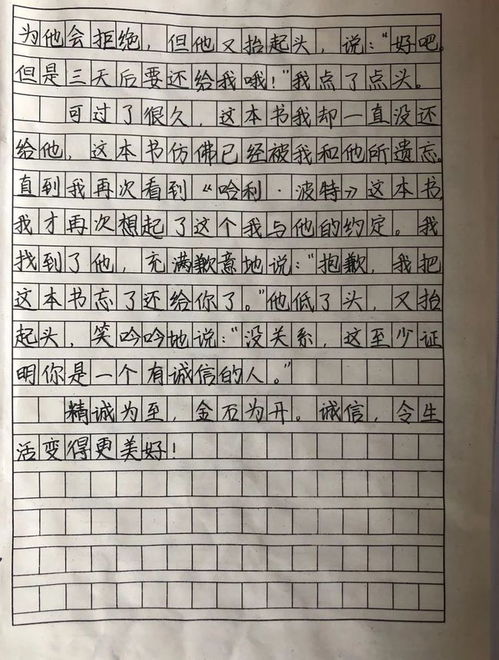 为他会拒绝，但他又抬起头，说：“好吧。
但是三天后要还给我哦！”我点了点头。
可过了很久，这本书我却一直没还
给他，这本书仿佛已经被我和他所遗忘。
直到我再次看到《哈利·波特》这本书，
我才再次想起了这个我与他的约定。我
找到了他，充满歉意地说：“抱歉，我把
这本书忘了还给你了。”他低了头，又抬
起头，笑吟吟地说：“没关系，这至少证
明你是一个有诚信的人。”
精诚为至，金石为开。诚信，令生
活变得更美好！